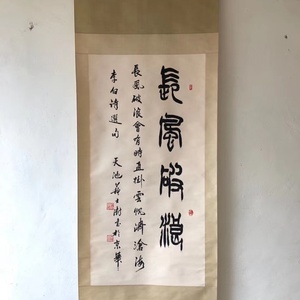 長風破浪
長風破浪會有時直掛雲帆濟滄海
李白詩選句
天池
書於京華